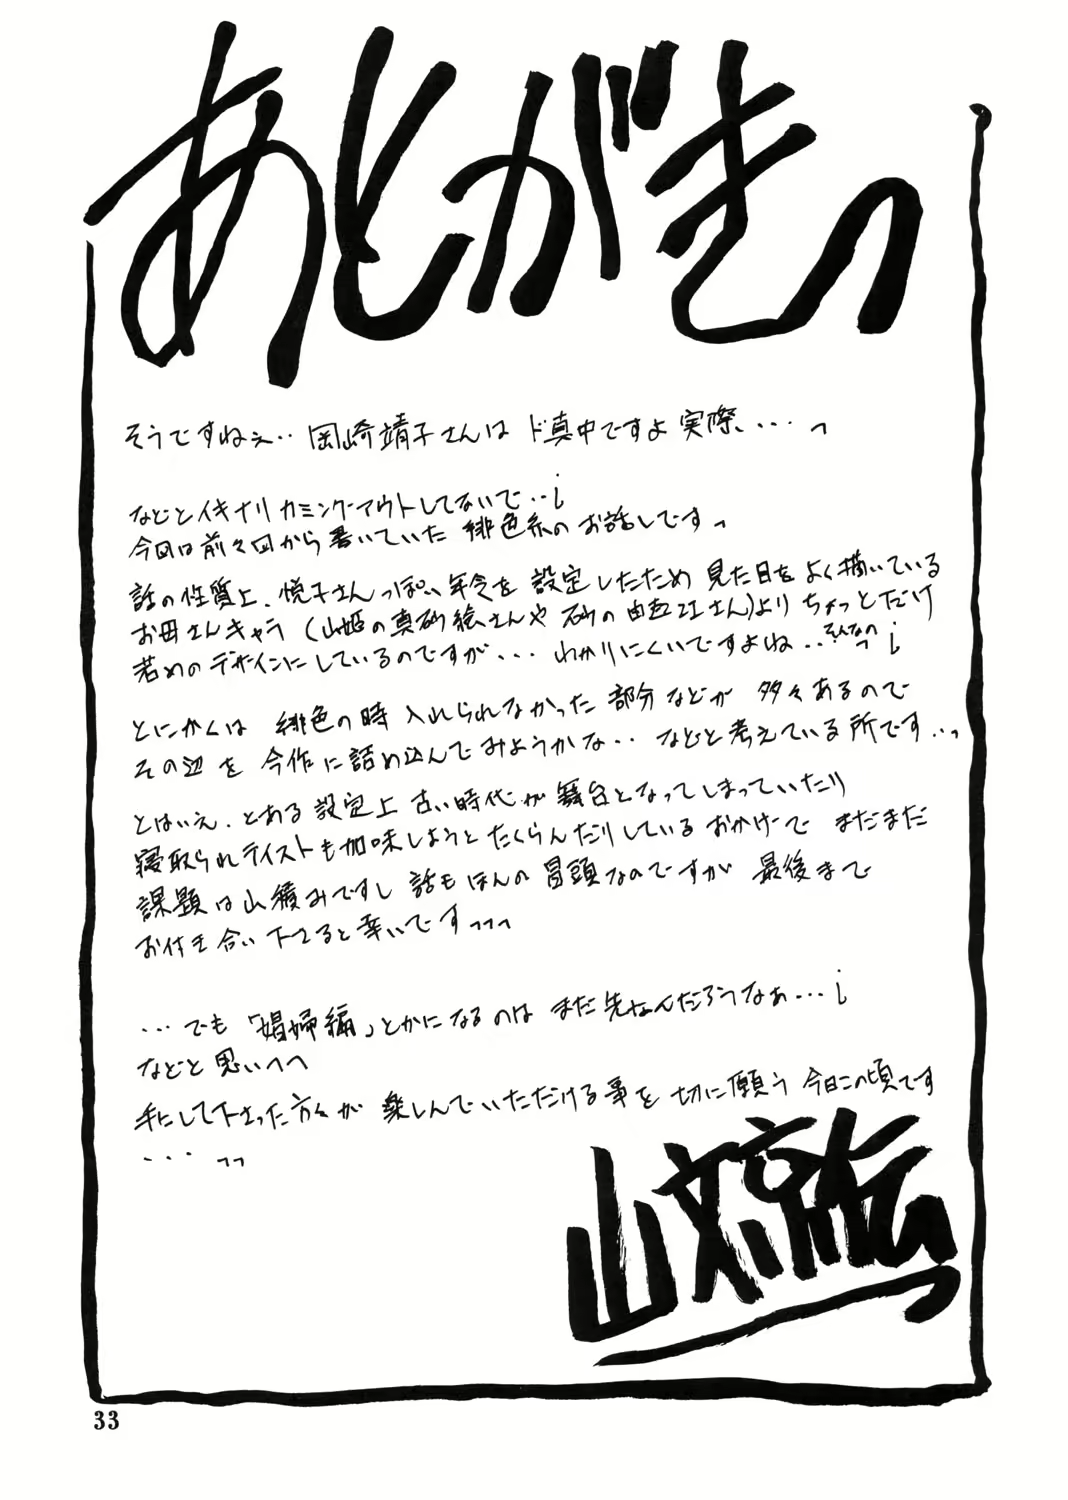 あとがきっ
そうですねぇ‥岡崎靖子さんは ド真中ですよ実際、...っ
などとイキナリ カミングアウトしてないで‥¡
今回は前々回から書いていた 緋色系の お話しですっ
話の性質上、悦子さんっぽい年令を 設定したため 見た目をよく描いている
お母さんキャラ (山姫の真砂絵さんや 砂の由 江さん)より ちょっとだけ
若めのデザインにしているのですが... わかりにくいですよね‥そんなのっ¡
とにかくは 緋色の時 入れられなかった 部分などが 多々あるので
その辺を 今作に詰め込んでみようかな‥ などと考えている所です‥っ
とはいえ、とある設定上 古い時代が 舞台となってしまっていたり
寝取られテイストも加味しようと たくらんだりしているおかげで まだまだ
課題は山積みですし 話もほんの 冒頭なのですが 最後まで
お付き合い下さると幸いですっっっ
...でも「娼婦編」とかになるのは まだ先なんだろうなぁ...¡
などと思いつつ
手にして下さった方々が 楽しんでいただける事を 切に願う 今日この頃です
... っっ
山文京伝
33